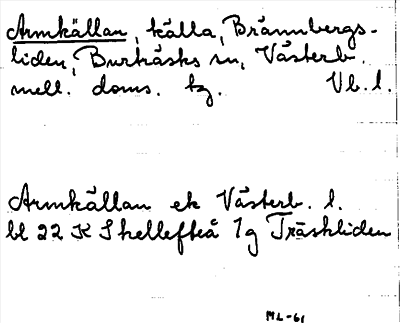 Armkällan, källa, Brännbergs-
liden, Burträsks sn, Västerb.
mell. doms. tg. Vb. l.
Armkällan ek Västerb. l.
bl 22 K Skellefteå 1g Träskliden
ML-61